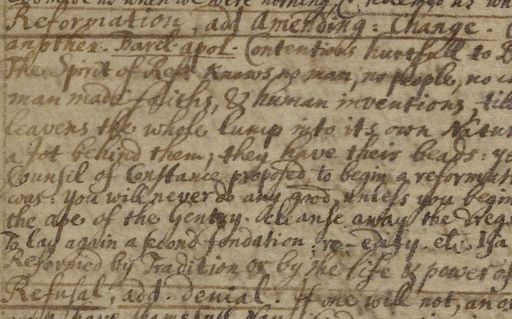 when we were nothing
Reformation, add Amending: Change.
another. Barcl. apol. Contentions hurtfull to
The Spirit of Ref knows no man, no people, no
man made faiths, & human inventions, till
leavens the whole lump into its own Natur
a Jot behind them; they have their beads:
Council of Constance proposed to begin a reformati
was: you will never do any good unless you begin
the of the Gentry. Cleanse away the dregs
To lay again a second fondation; re-edify. etc. Isa
Reformed by Tradition or by the life & power of
Refusal, add. denial. If one will not, an